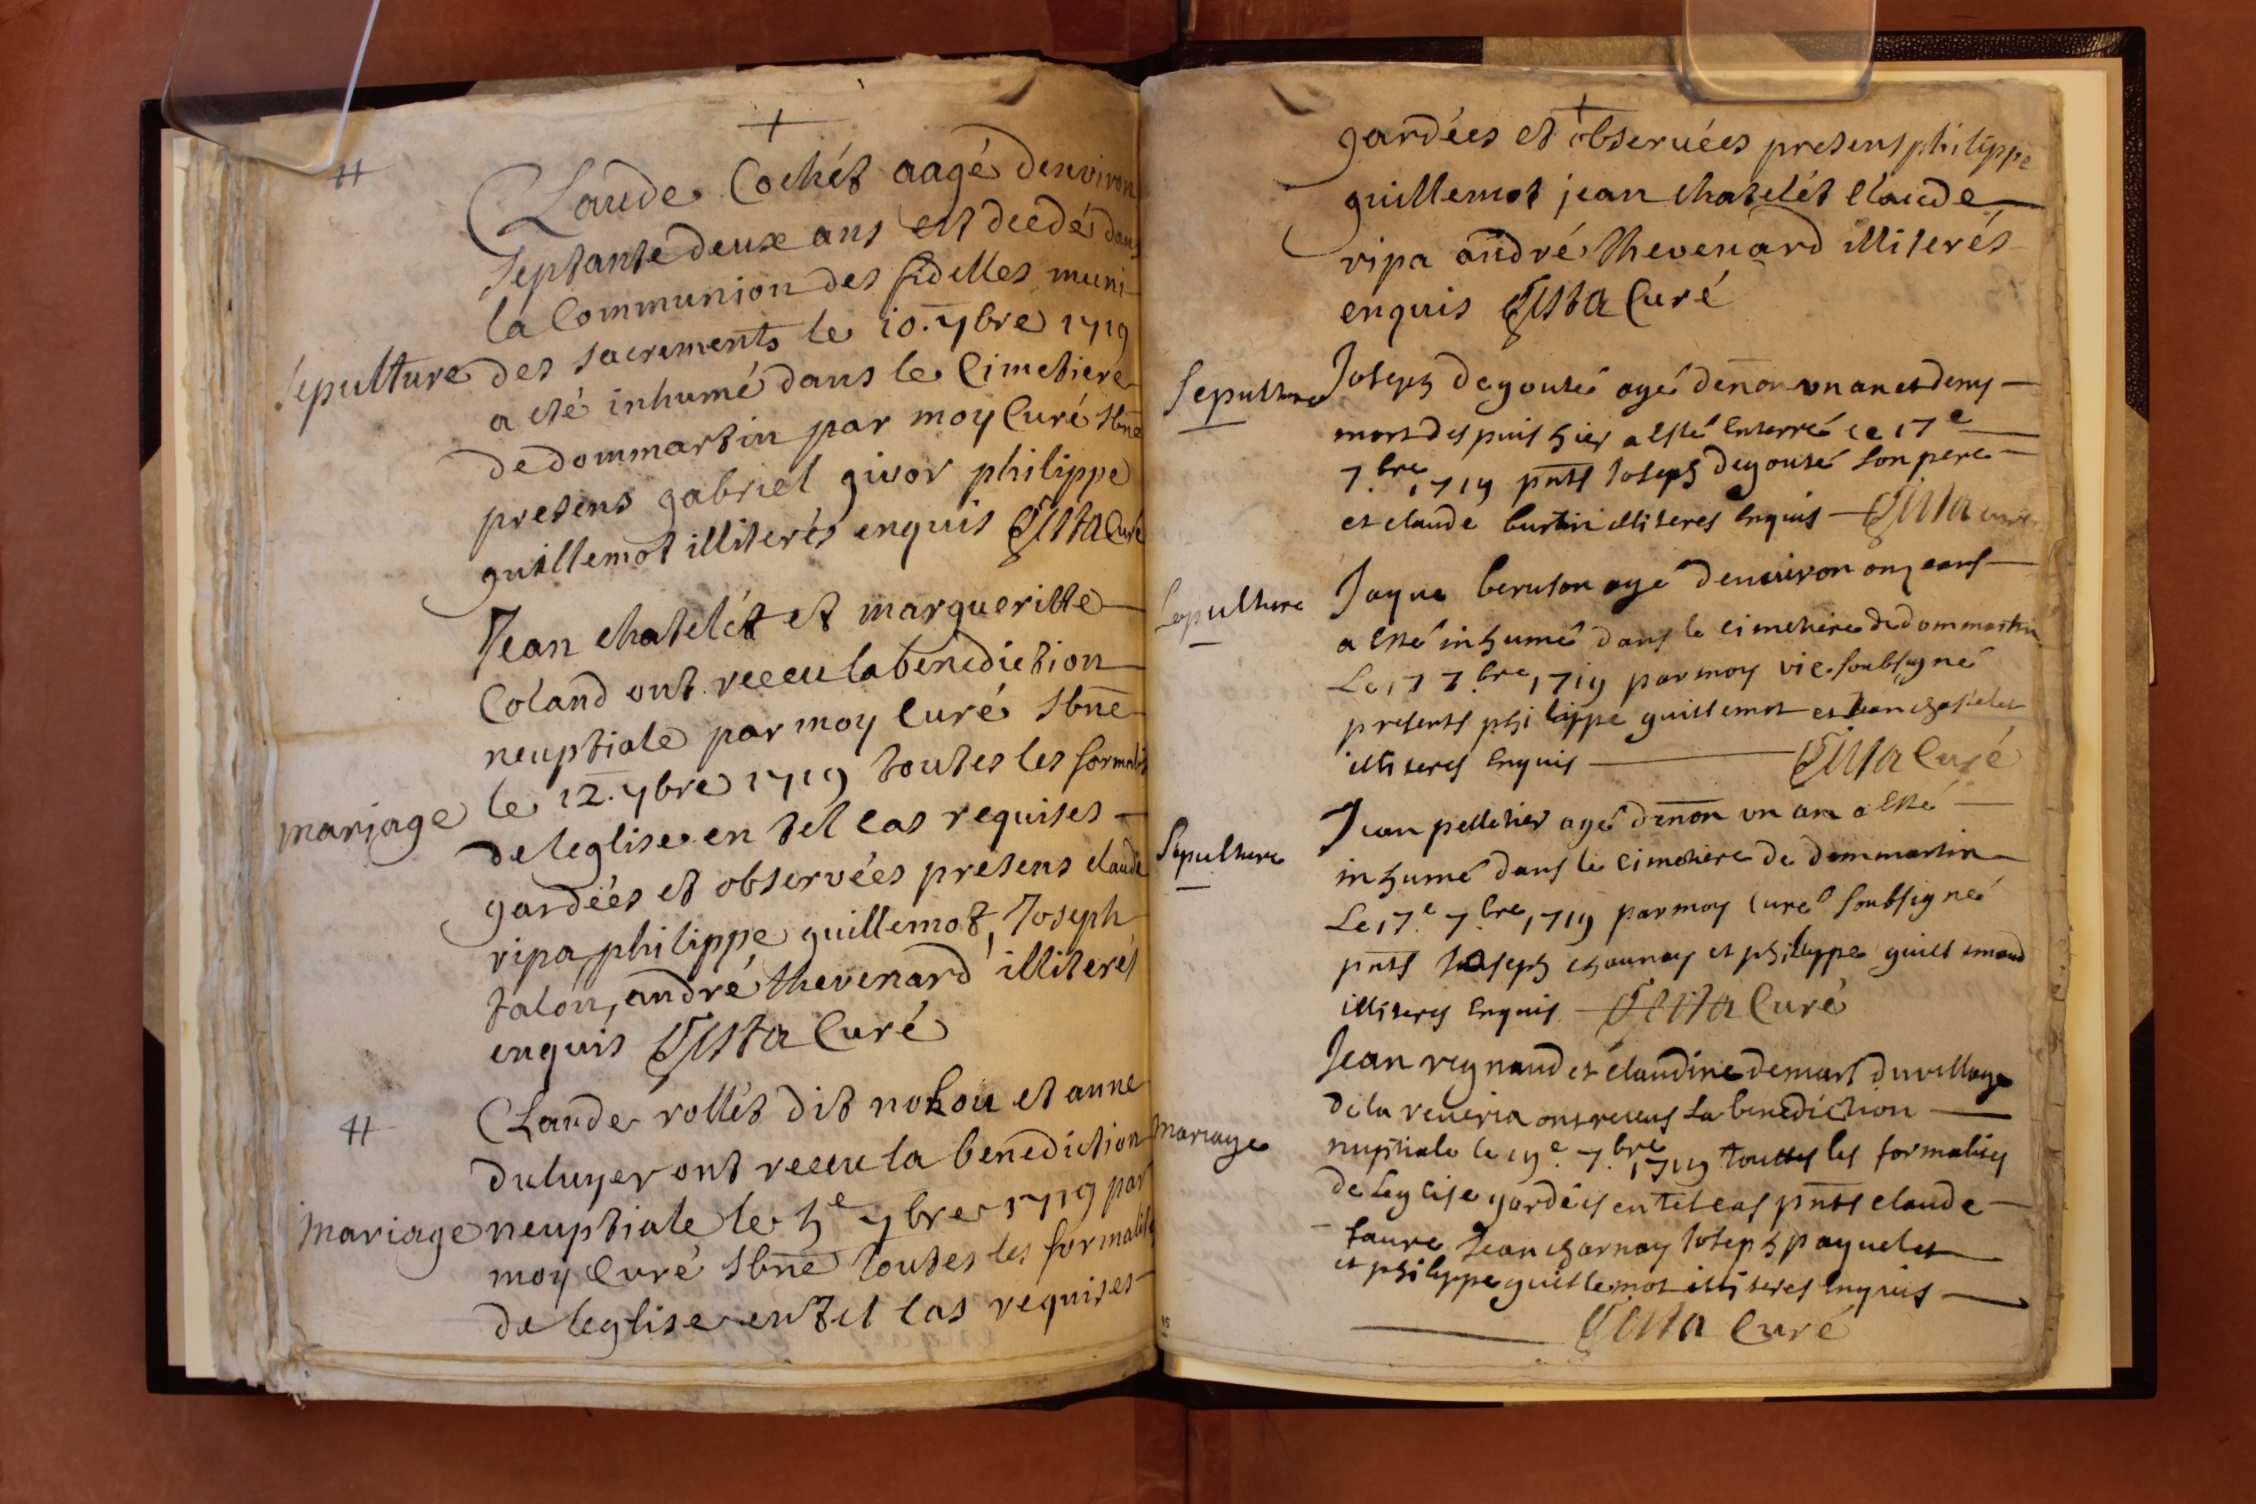 Claude Cochét aagé denviron
septante deux ans est decedé dans
la Communion des fidelles muni
Sepulture des sacrements le 10. 7bre 1719
a eté inhumé dans le Cimetiere
de dommartin par moy Curé sbne
presens gabriel givor philippe
guillemot illiterés enquis Curé
Jean chatelét et margueritte
Coland ont receu la benediction
neuptiale par moy Curé sbne
mariage le 12. 7bre 1719 toutes les formalit
de leglise en tél cas requises
gardées et observées presens claude
ripa philippe guillemot, Joseph
talon, andré thevenard illiterés
enquis Curé
Claude rollét dit et anne
duluyer ont receu la benediction
mariage neuptiale le 5e 7bre 1719 par
moy Curé sbne toutes les formalités
de leglise en tél cas requises
gardées et observées presens philippe
guillemot jean chatelét Claude
ripa andré thevenard illiterés
enquis Curé
Sepulture Joseph degouté agé denon un an et demy
mort des puis hier a esté enterré le 17e
7.bre 1719 pnts Joseph degouté son pere
et claude burtin illiteres enquis curé
Sepulture Jaque agé denuiron onze ans
a esté inhumé dans le cimetiere de dommartin
Le 17 7.bre 1719 par moy vic. soubsigné
presents philippe guillemot et Jean chastelet
illiteres enquis Curé
Sepulture Jean pelletier agé denon un an a esté
inhumé dans le cimetiere de dommartin
Le 17.e 7.bre 1719 par moy Curé soubsigné
pnts Joseph charnay et philippe guillemaud
illiteres enquis Curé
Jean reynaud et claudine demars du village
de la reueria ont receus la benediction
mariage nuptiale le 19e. 7.bre 1719 touttes les formalites
de leglise gardées en tel cas pnts claude
faure Jean charnay Joseph paquelet
et philippe guillemot illiteres enquis
Curé